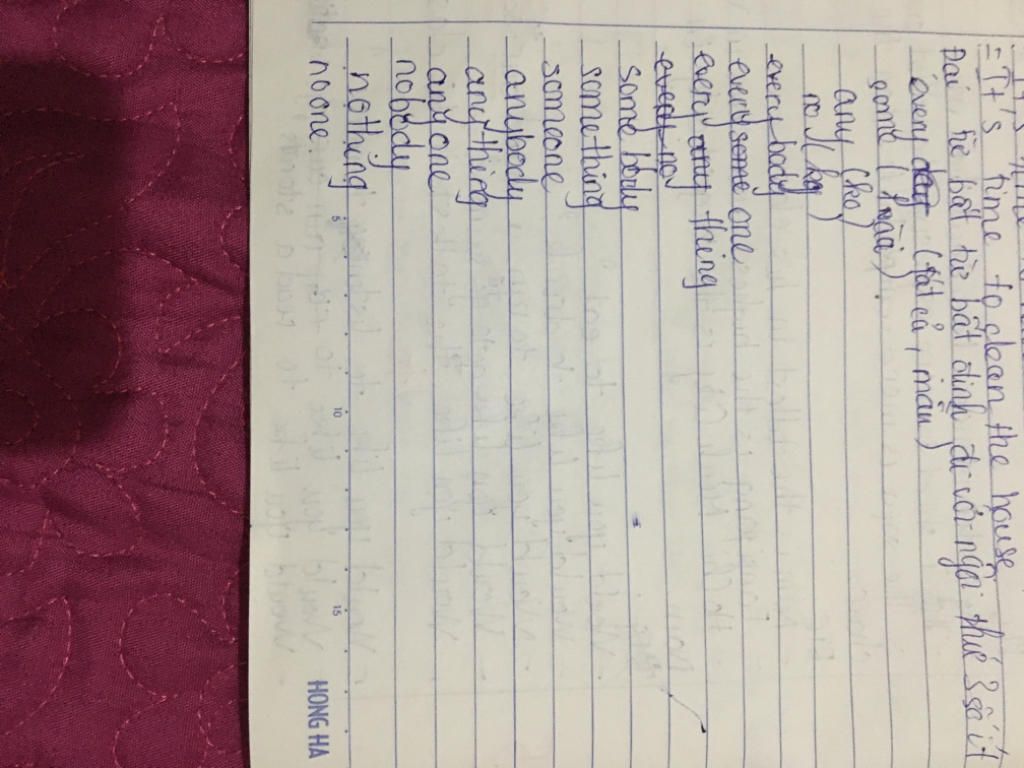 = It's time to clean the house
Đai từ bất từ bất định đi với ngôi thứ 3 số ít
every (tất cả, mãn)
some (
any (ko)
no (kg)
every body
every some one
every any thing
every no
some body
some thing
someone
anybody
any thing
any one
nobody
nothing
no one
5
10
15
HONG HA